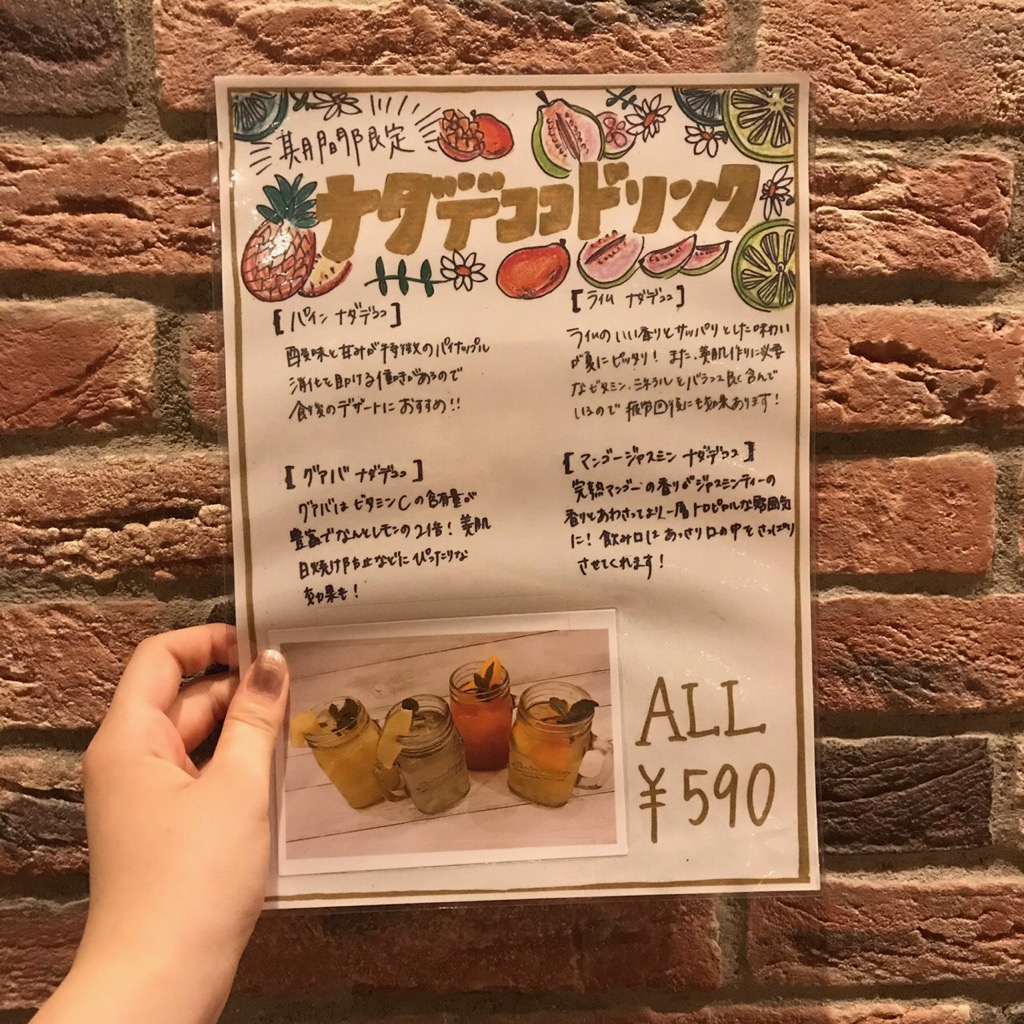 期間限定
ナタデココドリンク
[パイン ナタデココ]
酸味と甘みが特徴のパイナップル
消化を助ける働きがあるので
食後のデザートにおすすめ!!
[ライム ナタデココ]
ライムのいい香りとサッパリとした味わい
が夏にピッタリ! また、美肌作りに必要
なビタミン、ミネラルをバランス良く含んで
いるので疲労回復にも効果あります!
[グァバ ナタデココ]
グァバはビタミンCの含有量が
豊富でなんとレモンの2倍! 美肌
日焼け防止などにぴったりな
効果も!
[マンゴージャスミン ナタデココ]
完熟マンゴーの香りがジャスミンティーの
香りとあわさってより一層トロピカルな雰囲気
に! 飲み口はあっさり口の中をさっぱり
させてくれます!
ALL
¥590